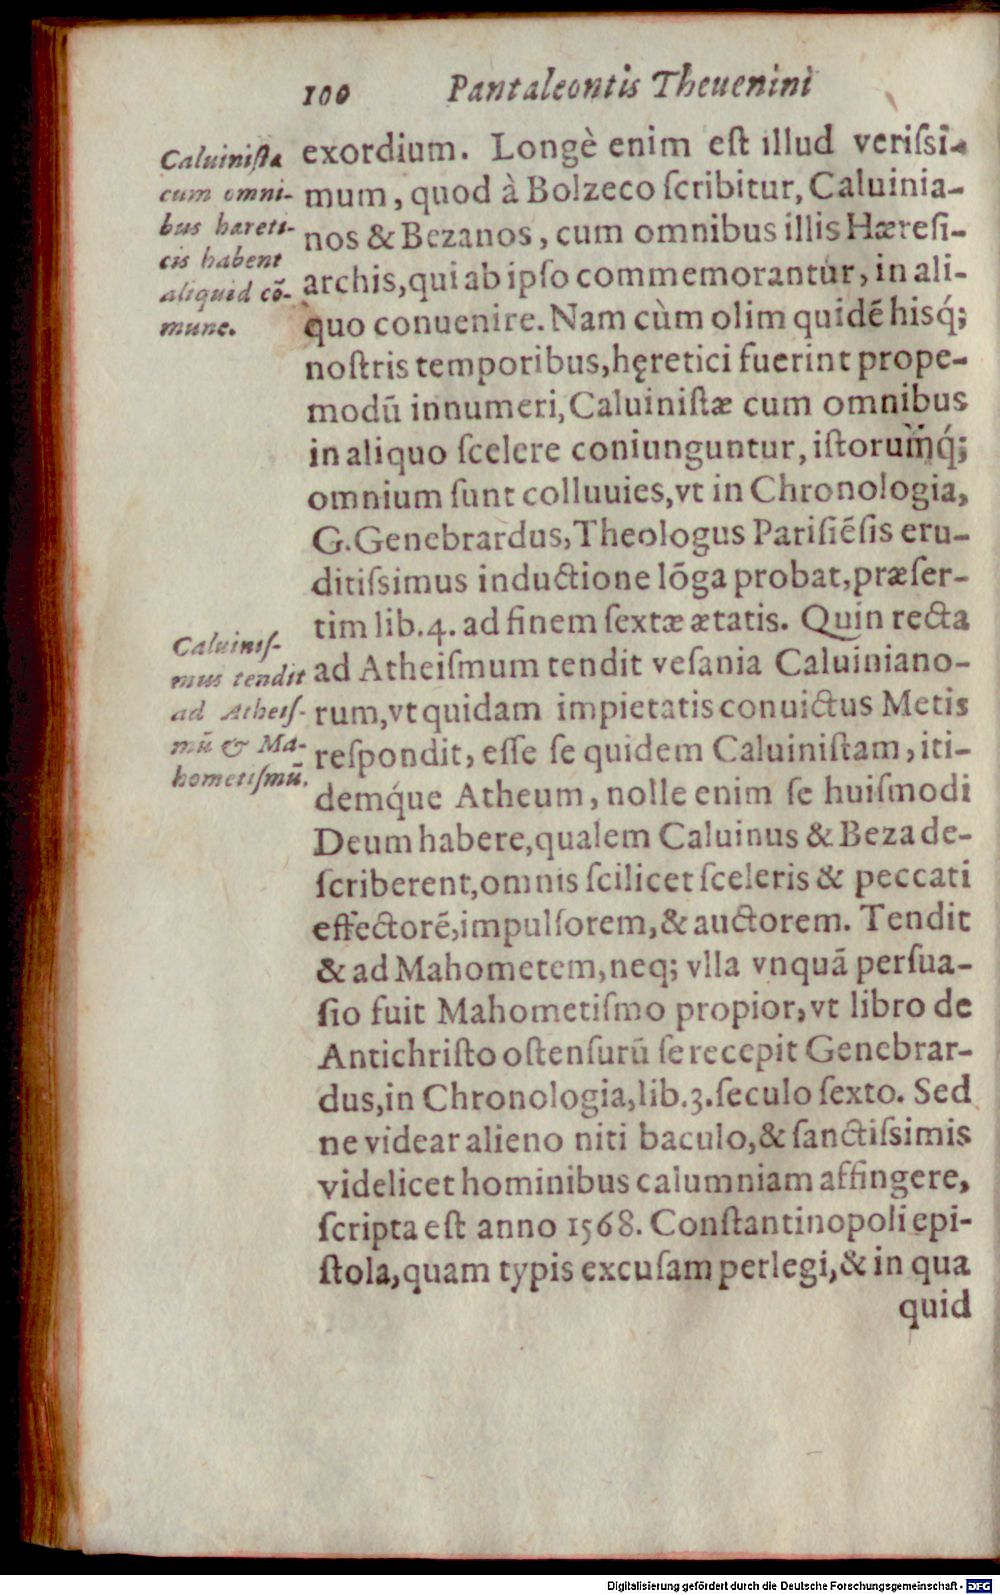 100 Pantaleontis Theuenini
Caluinistæ
cum omni-
bus hæreti-
cis habent
aliquid cō-
mune.
exordium. Longè enim eſt illud veriſsi-
mum, quod à Bolzeco ſcribitur, Caluinia-
nos & Bezanos, cum omnibus illis Hæreſi-
archis, qui ab ipſo commemorantur, in ali-
quo conuenire. Nam cùm olim quidē hisq́;
noſtris temporibus, hęretici fuerint prope-
modū innumeri, Caluiniſtæ cum omnibus
in aliquo ſcelere coniunguntur, iſtorumq́;
omnium ſunt colluuies, vt in Chronologia,
G. Genebrardus, Theologus Pariſiēſis eru-
ditiſsimus inductione lōga probat, præſer-
tim lib. 4. ad finem ſextæ ætatis. Quin recta
Caluiniſ-
mus tendit
ad Atheiſ-
mū & Ma-
hometiſmū.
ad Atheiſmum tendit veſania Caluiniano-
rum, vt quidam impietatis conuictus Metis
reſpondit, eſſe ſe quidem Caluiniſtam, iti-
demq́ue Atheum, nolle enim ſe huiſmodi
Deum habere, qualem Caluinus & Beza de-
ſcriberent, omnis ſcilicet ſceleris & peccati
effectorē, impulſorem, & auctorem. Tendit
& ad Mahometem, neq; vlla vnquā perſua-
ſio fuit Mahometiſmo propior, vt libro de
Antichriſto oſtenſurū ſe recepit Genebrar-
dus, in Chronologia, lib. 3. ſeculo ſexto. Sed
ne videar alieno niti baculo, & ſanctiſsimis
videlicet hominibus calumniam affingere,
ſcripta eſt anno 1568. Conſtantinopoli epi-
ſtola, quam typis excuſam perlegi, & in qua
quid
Digitalisierung gefördert durch die Deutsche Forschungsgemeinschaft - DFG